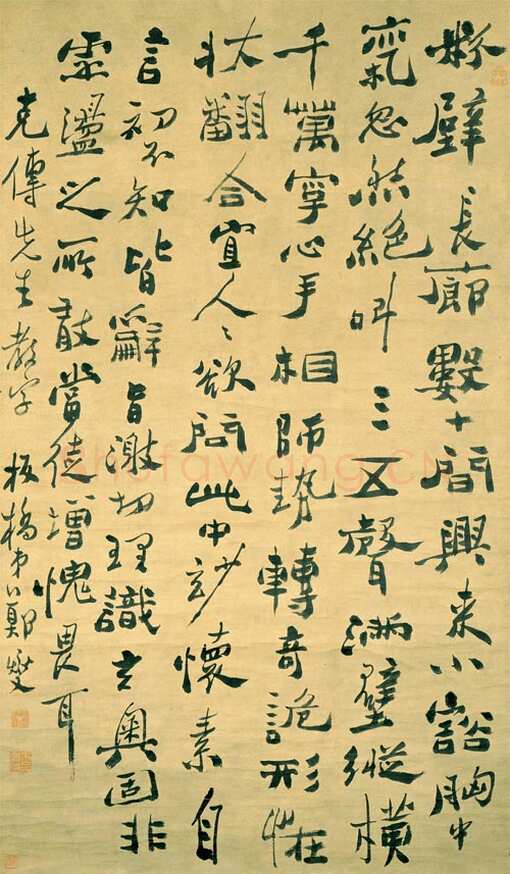 粉壁長廊數十間興来小豁胸中
氣忽然絕叫三五聲滿壁縱橫
千萬字心手相師勢轉奇詭形怪
狀翻合宜人〻欲問此中妙懷素自
言初不知皆辭旨激切理識玄奧固非
虛盪之所敢當徒增愧畏耳
克傳先生教字 板橋弟鄭燮
shufawang.CN